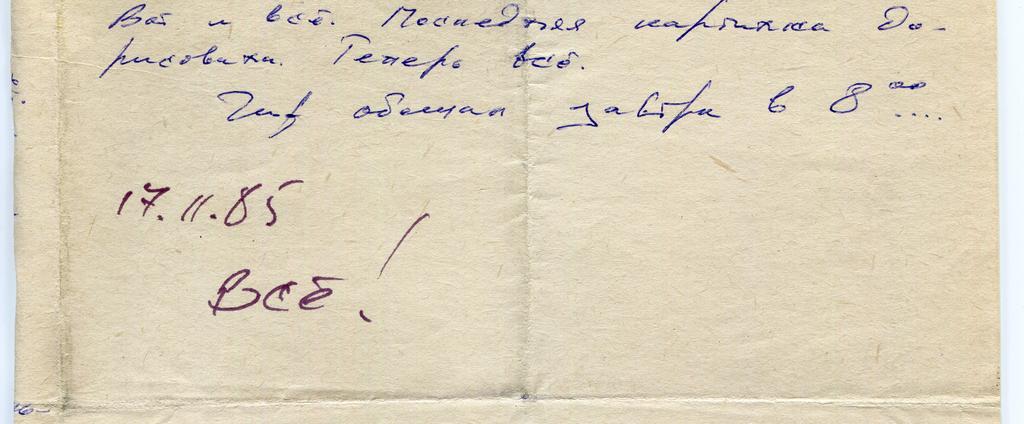 Вот и всё. Последняя картинка до-
рисована. Теперь всё.
обещан завтра в 8⁰⁰....
17.11.85
ВСЁ!